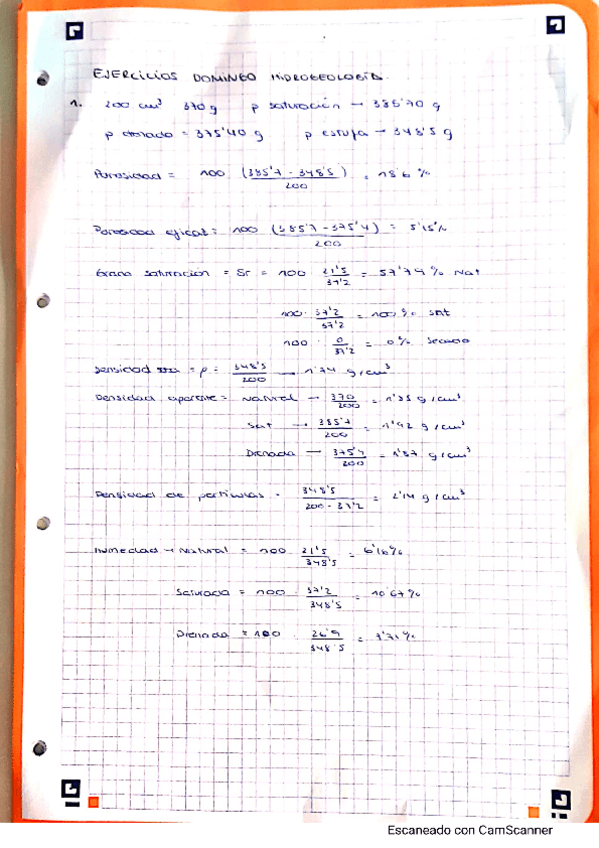 EJERCICIOS DOMINGO HIDROGEOLOGÍA.
1. 200 cm³ 370 g p saturación → 385'70 g
p drenado = 375'40 g p estufa → 348'5 g
Porosidad = 100 (385'7 - 348'5) / 200 = 18'6 %
Porosidad eficaz = 100 (385'7 - 375'4) / 200 = 5'15 %
Grado saturación = Sr = 100 21'5 / 37'2 = 57'79 % Nat
100 · 37'2 / 37'2 = 100 % sat
100 · 0 / 37'2 = 0 % secado
Densidad = ρ = 348'5 / 200 → 1'74 g/cm³
Densidad aparente = Natural → 370 / 200 = 1'85 g/cm³
Sat → 385'7 / 200 = 1'92 g/cm³
Drenada → 375'4 / 200 = 1'87 g/cm³
Densidad de partículas = 348'5 / 200 - 37'2 = 2'14 g/cm³
Humedad → Natural = 100 · 21'5 / 348'5 = 6'16 %
Saturada = 100 · 37'2 / 348'5 = 10'67 %
Drenada = 100 · 26'9 / 348'5 = 7'71 %
Escaneado con CamScanner